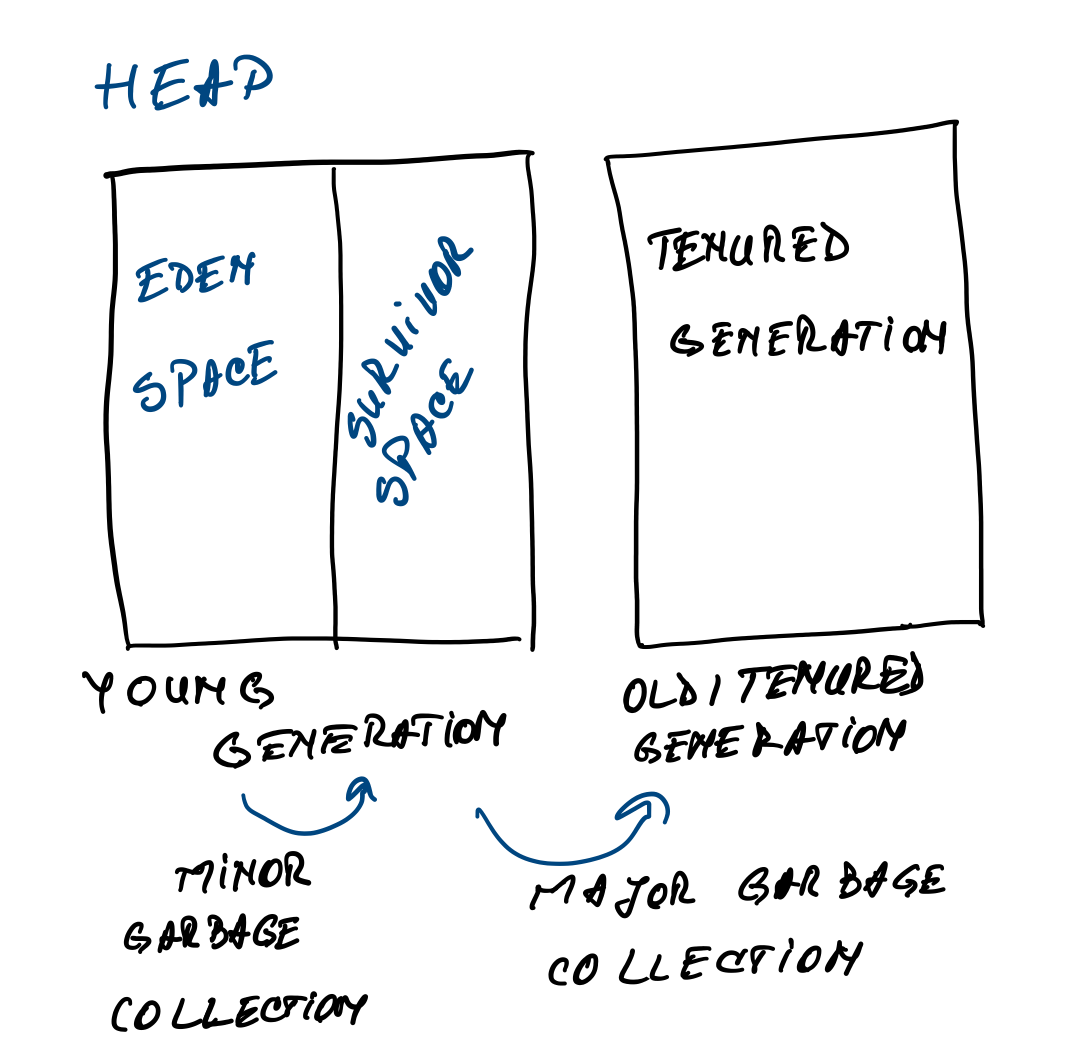 HEAP
EDEN
SPACE
SURVIVOR
SPACE
TENURED
GENERATION
YOUNG
GENERATION
OLD / TENURED
GENERATION
MINOR
GARBAGE
COLLECTION
MAJOR GARBAGE
COLLECTION